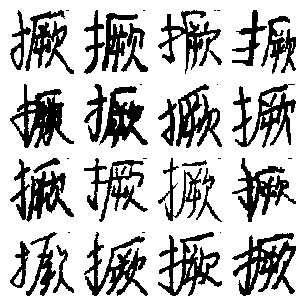 撅撅撅撅
撅撅撅撅
撅撅撅撅
撅撅撅撅